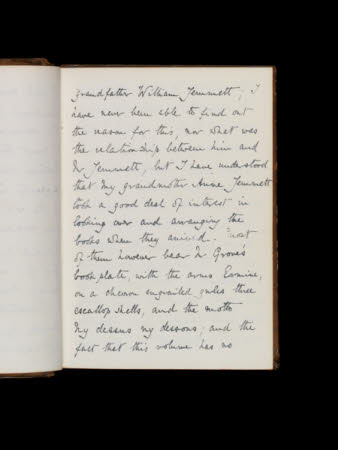 grandfather William Jemmett; I
have never been able to find out
the reason for this, nor what was
the relationship between him and
Mr Jemmett, but I have understood
that my grandmother Anne Jemmett
took a good deal of interest in
looking over and arranging the
books when they arrived. Most
of them however bear Mr Grove's
book plate, with the arms Ermine,
on a chevron engrailed gules three
escallop shells, and the motto
Ny dessus ny dessous; and the
fact that this volume has no